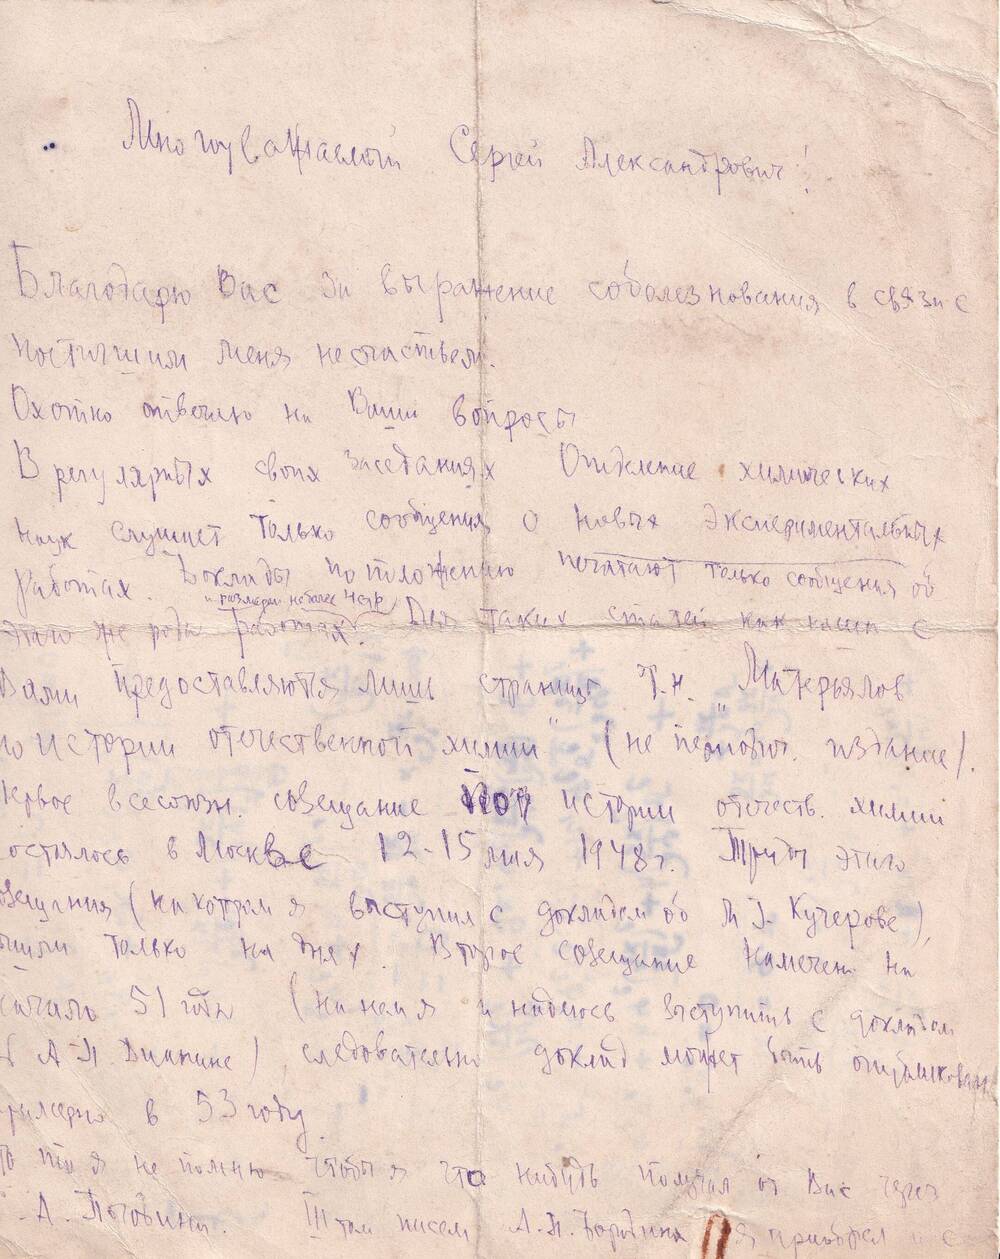 Многоуважаемый Сергей Александрович!
Благодарю Вас за выражение соболезнования в связи с
постигшим меня несчастьем.
Охотно отвечаю на Ваши вопросы
В регулярных своих заседаниях Отделение химических
наук слушает только сообщения о новых экспериментальных
работах. Доклады по положению печатают только сообщения об
и размером не более 4 стр
этого же рода работах. Для таких статей как наша с
Вами предоставляются лишь страницы т.н. „Матерьялов
по истории отечественной химии" (не период. издание).
Первое всесоюзн. совещание по истории отечеств. химии
состоялось в Москве 12-15 мая 1948 г. Труды этого
совещания (на котором я выступил с докладом об М.Г. Кучерове),
вышли только на днях. Второе совещание намечено на
начало 51 года (на нем я и надеюсь выступить с докладом
об А П Дианине), следовательно доклад может быть опубликован
примерно в 53 году.
то я не помню чтобы я что нибудь получал от Вас через
А. Поговина. III том писем А.П. Бородина я приобрел и с